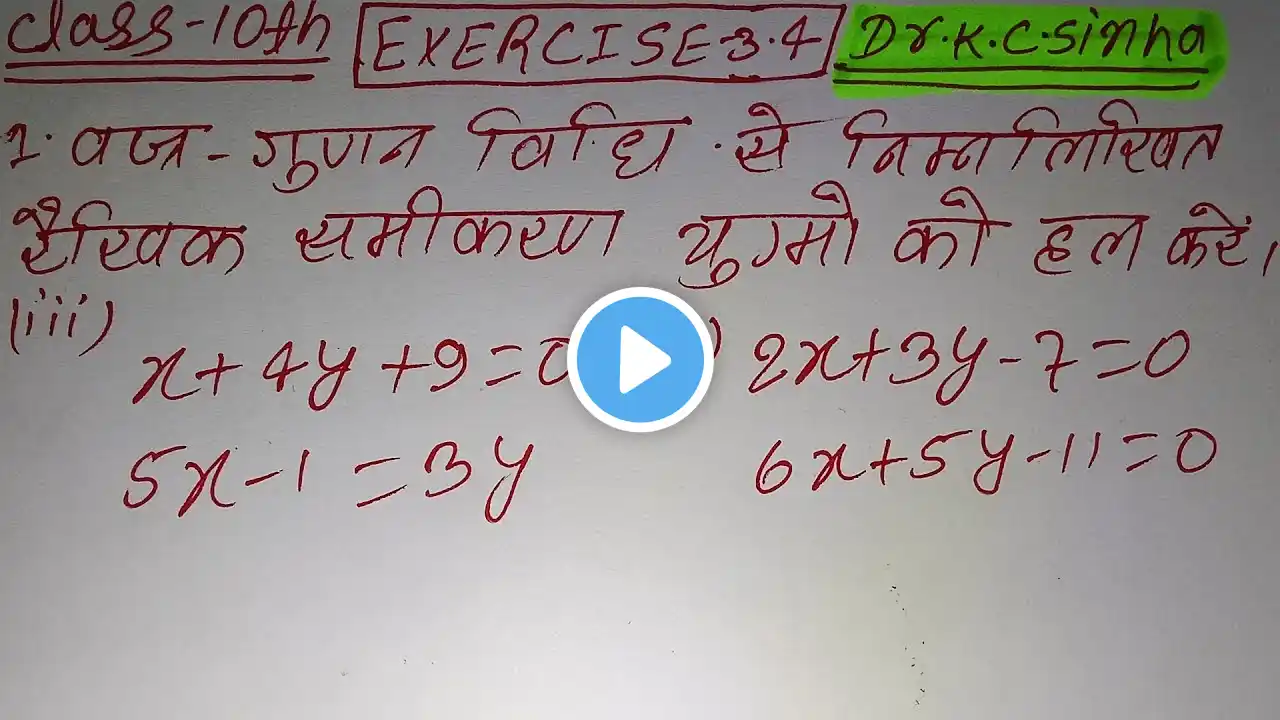 Class-10th EXERCISE-3.4 Dr.K.C.Sinha
1. वज्र-गुणन विधि से निम्नलिखित
रैखिक समीकरण युग्मो को हल करें।
(iii)
x+4y+9=0 ) 2x+3y-7=0
5x-1=3y 6x+5y-11=0